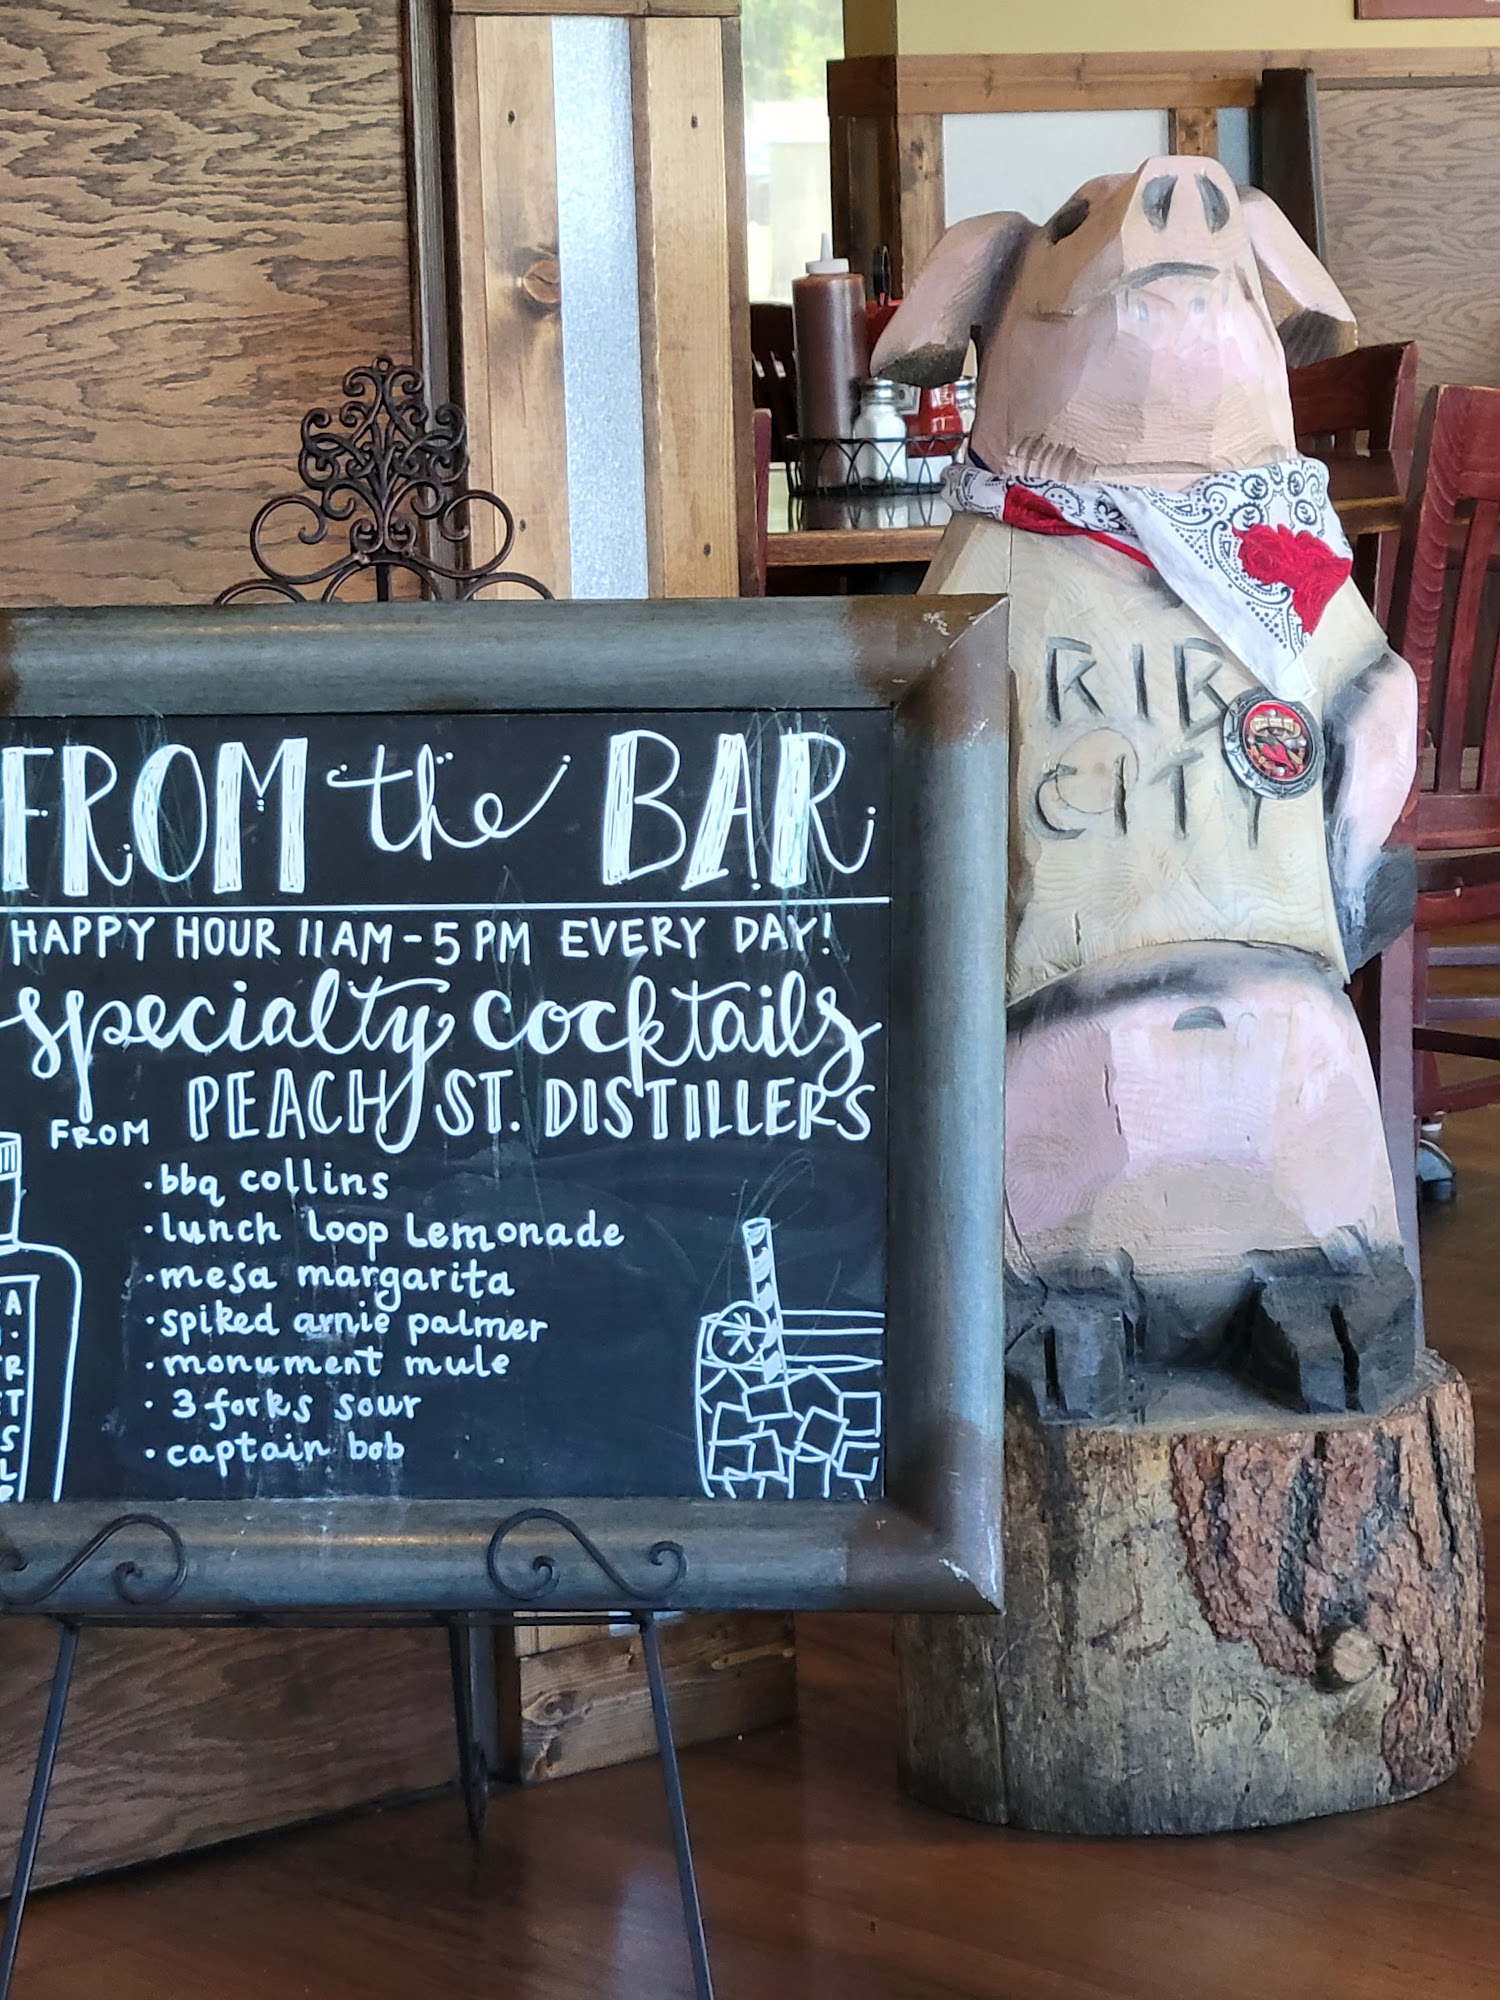 FROM the BAR
HAPPY HOUR 11AM-5PM EVERY DAY!
specialty cocktails
FROM PEACH ST. DISTILLERS
·bbq collins
·lunch loop lemonade
·mesa margarita
·spiked arnie palmer
·monument mule
·3 forks sour
·captain bob
RIB
CITY